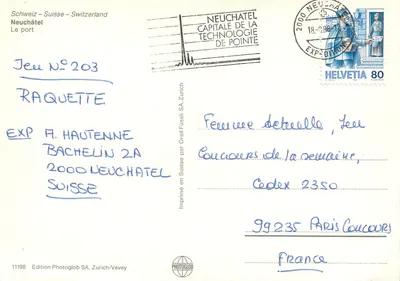 Schweiz – Suisse – Switzerland
Neuchâtel
Le port
NEUCHATEL
CAPITALE DE LA
TECHNOLOGIE
DE POINTE
2000 NEUCHATEL
EXPEDITION
HELVETIA 80
Jeu N° 203
RAQUETTE
EXP A. HAUTENNE
BACHELIN 2A
2000 NEUCHATEL
SUISSE
Imprimé en Suisse par Orell Füssli SA, Zurich
Femme Actuelle, Jeu
Concours de la semaine,
Cedex 2350
99235 PARIS CONCOURS
France
11198 Edition Photoglob SA, Zürich-Vevey